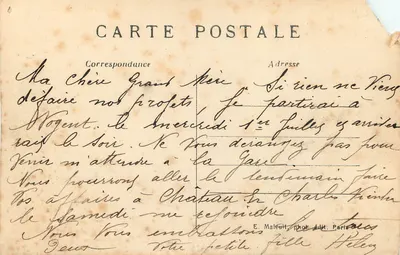 CARTE POSTALE
Correspondance Adresse
Ma chère Grand Mère, Si rien ne Vient
défaire nos projets, je partirai à
Nogent. le mercredi 1er Juillet et arriver
rais le soir. Ne Vous dérangez pas pour
venir m'attendre à la Gare
Nous pourrons aller le lendemain faire
Vos affaires à Château Ch Charles Viendra
le Samedi me rejoindre
E. Malcuit, phot. édit. Paris
Nous Vous embrassons tous
Deux Votre petite fille Hélèn